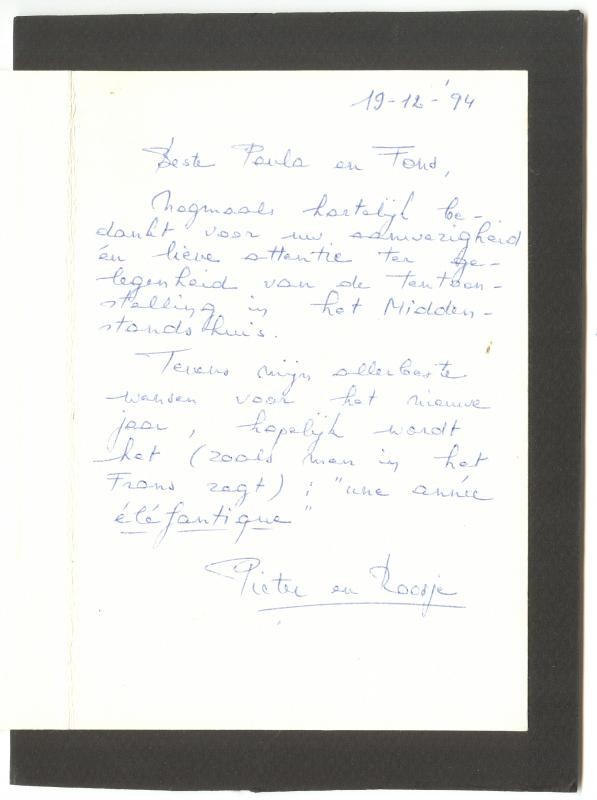 19-12-'94
Beste Paula en Fons,
Nogmaals hartelijk be-
dankt voor uw aanwezigheid
én lieve attentie ter ge-
legenheid van de tentoon-
stelling in het Midden-
standshuis.
Tevens mijn allerbeste
wensen voor het nieuwe
jaar, hopelijk wordt
het (zoals men in het
Frans zegt) : "une année
éléfantique"
Pieter en Roosje